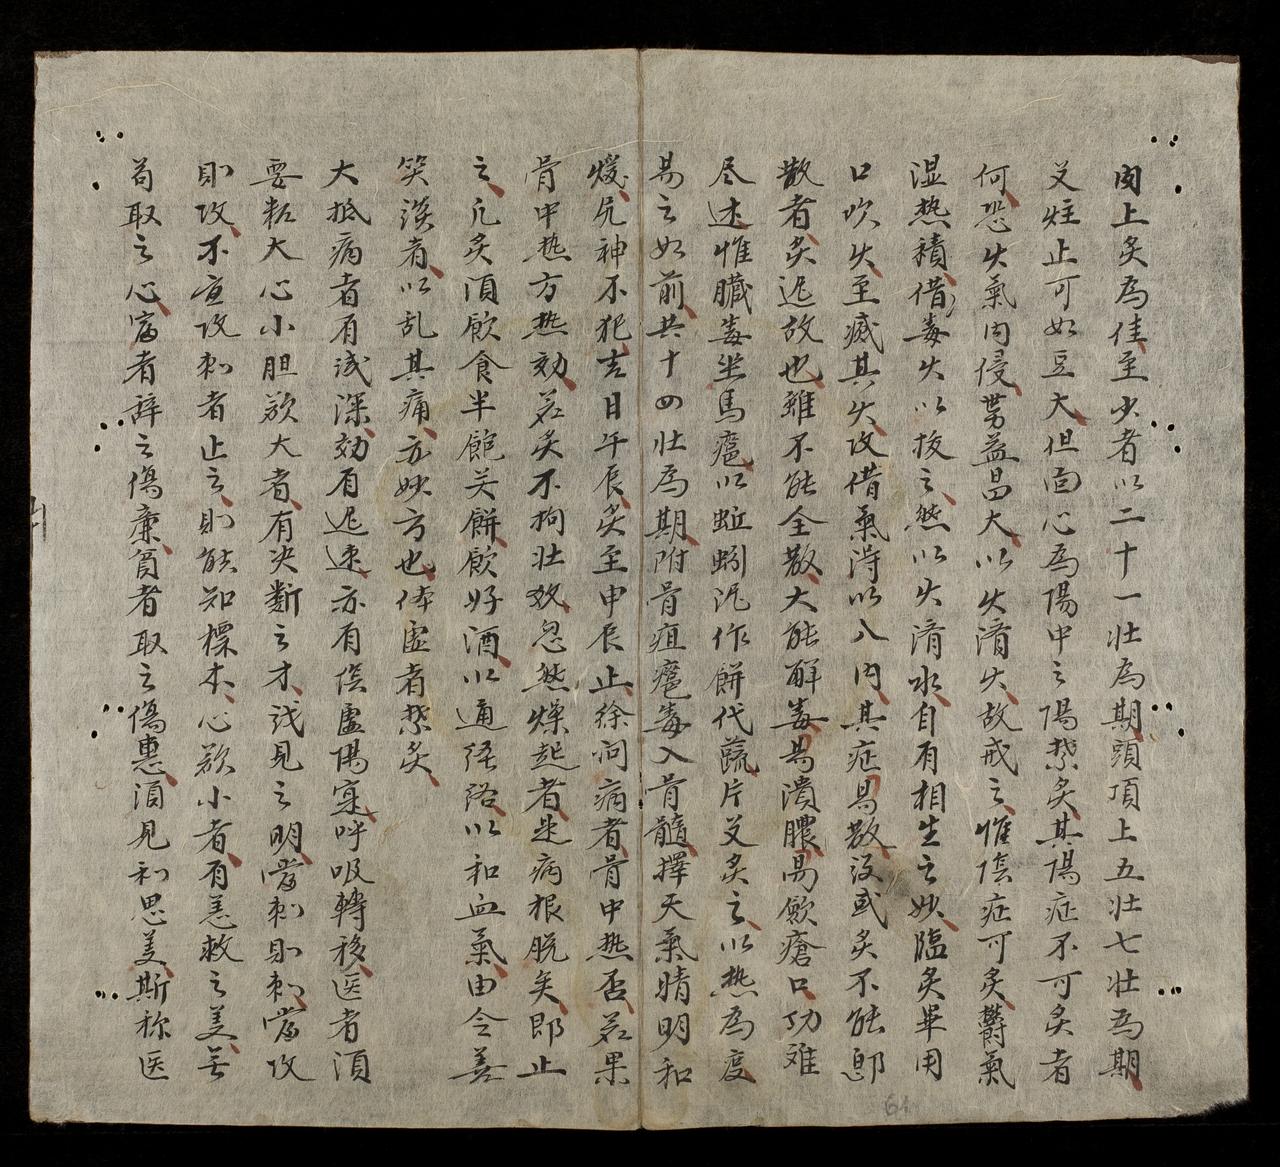 肉上灸為佳至少者以二十一壮為期頭頂上五壮七壮為期
艾炷止可如豆大但面心為陽中之陽禁灸其陽症不可者
何恐火氣内侵勢益昌大以火濟火故戒之惟陰症可灸欝氣
湿热積借毒火以拔之然以火濟水自有相生之妙臨灸畢用
口吹火至滅其火攻借氣得以入内其症易散没或灸不能即
散者灸迟故也雖不能全散大能解毒易潰膿易歛瘡口功难
尽述惟臟毒坐馬癰以蚯蚓泥作餅代蒜片艾灸之以热為度
易之如前共十四壮為期附骨疽癰毒入骨髓擇天氣晴明和
煖尻神不犯吉日午辰灸至申辰止徐问病者骨中热否若果
骨中热方热効若灸不拘壮数忽然燥起者是病根脱矣即止
之凡灸湏飲食半飽关餅飲好酒以通経络以和血氣由令善
笑談者以乱其痛亦妙方也体虚者禁灸
大抵病者有浅深効有迟速亦有陰虚陽寔呼吸轉移医者湏
要粘大心小胆欲大者有决断之才浅見之明當刺則刺當攻
則攻不宜攻刺者止之則能知標本心欲小者有恙救之美无
苟取之心富者辞之傷亷貧者取之傷惠湏見利思美斯称医